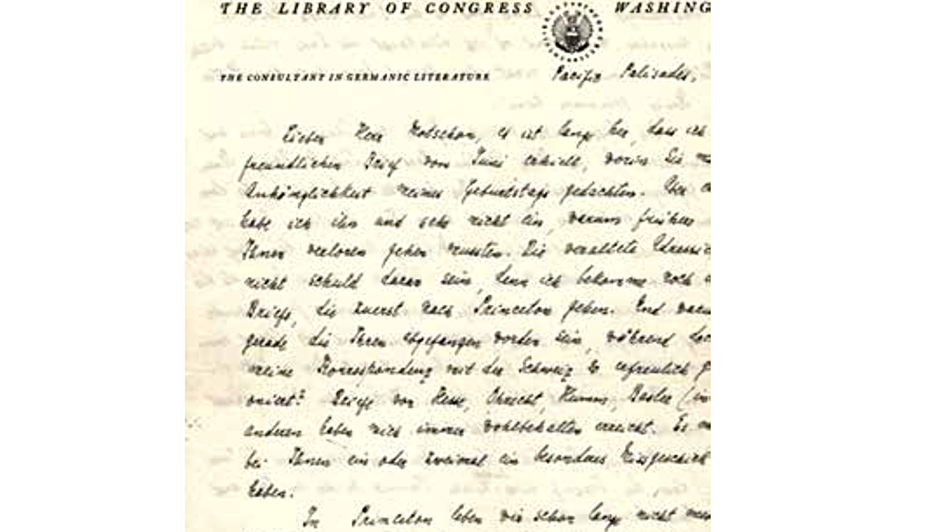 THE LIBRARY OF CONGRESS WASHING
THE CONSULTANT IN GERMANIC LITERATURE
Pacific Palisades,
Lieber Herr Motschan, es ist lange her, dass ich
freundlichen Brief vom Juni erhielt, worin Sie
Anhänglichkeit meines Geburtstags gedachten. Aber
habe ich ihn und sehe nicht ein, warum frühere
Ihnen verloren gehen mussten. Die veraltete Adresse
nicht schuld daran sein, denn ich bekomme noch
Briefe, die zuerst nach Princeton gehen. Und warum
gerade die Ihren abgefangen worden sein, während doch
meine Korrespondenz mit der Schweiz so erfreulich
oniert? Briefe von Hesse, Oprecht, Humm, Basler (in
anderen haben mich immer wohlbehalten erreicht. Es
bei Ihnen ein oder zweimal ein besonderes Missgeschick
haben.
In Princeton leben wir schon lange nicht mehr